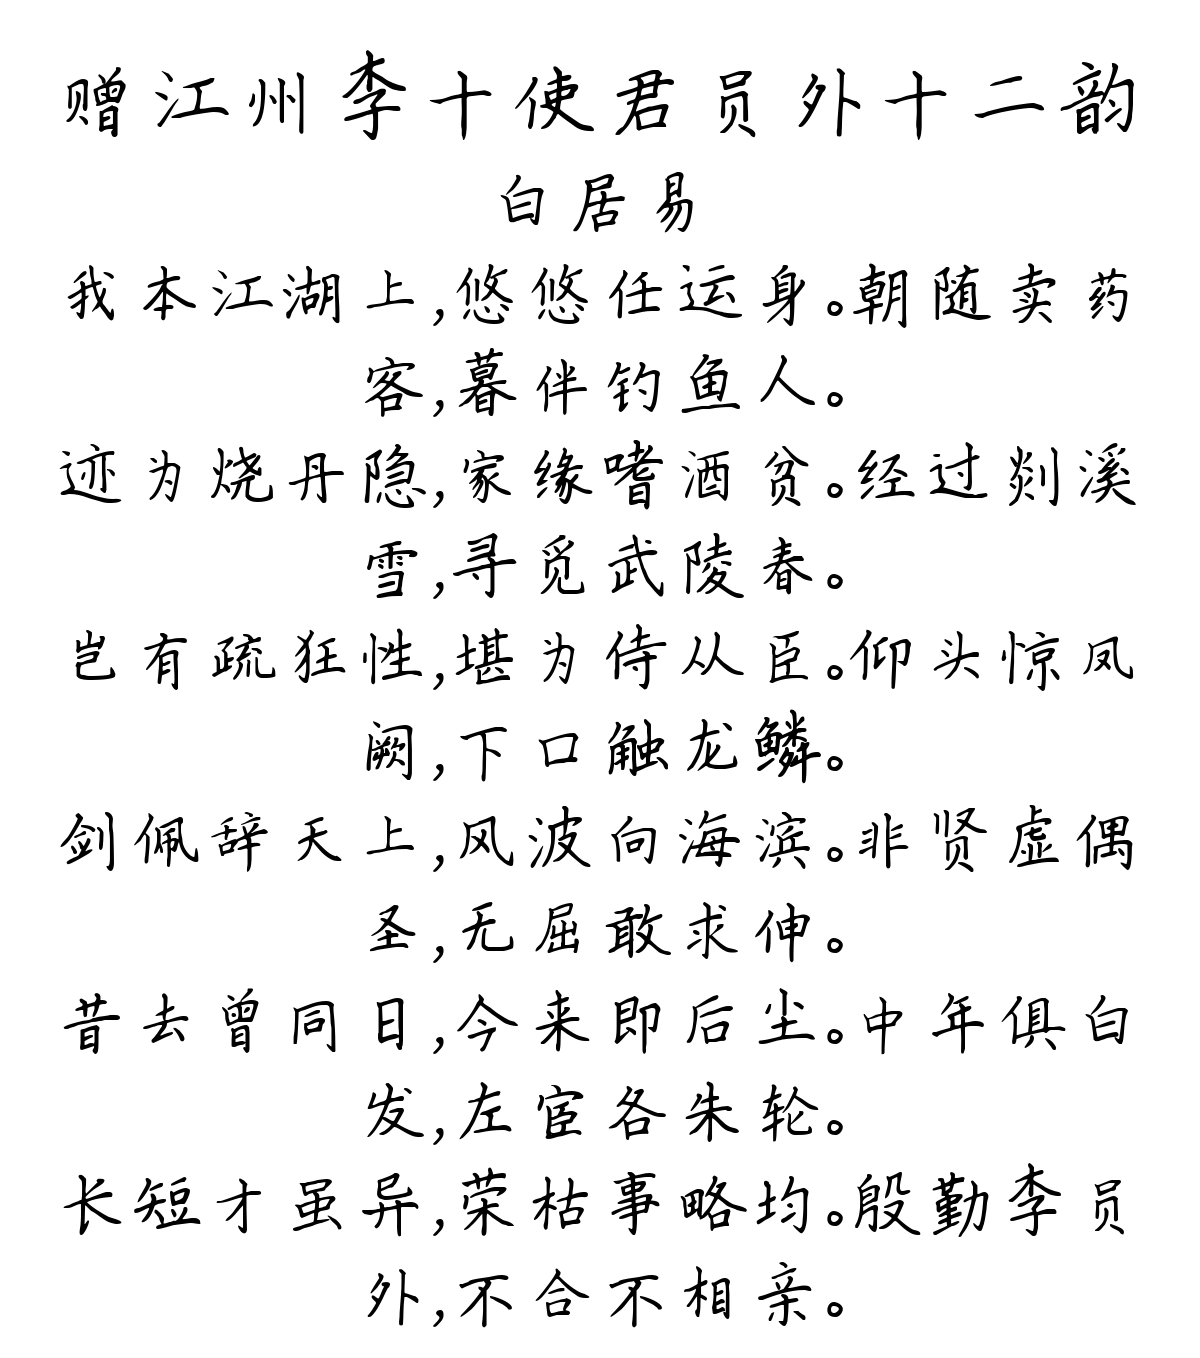 赠江州李十使君员外十二韵
白居易
我本江湖上,悠悠任运身。朝随卖药
客,暮伴钓鱼人。
迹为烧丹隐,家缘嗜酒贫。经过剡溪
雪,寻觅武陵春。
岂有疏狂性,堪为侍从臣。仰头惊凤
阙,下口触龙鳞。
剑佩辞天上,风波向海滨。非贤虚偶
圣,无屈敢求伸。
昔去曾同日,今来即后尘。中年俱白
发,左宦各朱轮。
长短才虽异,荣枯事略均。殷勤李员
外,不合不相亲。